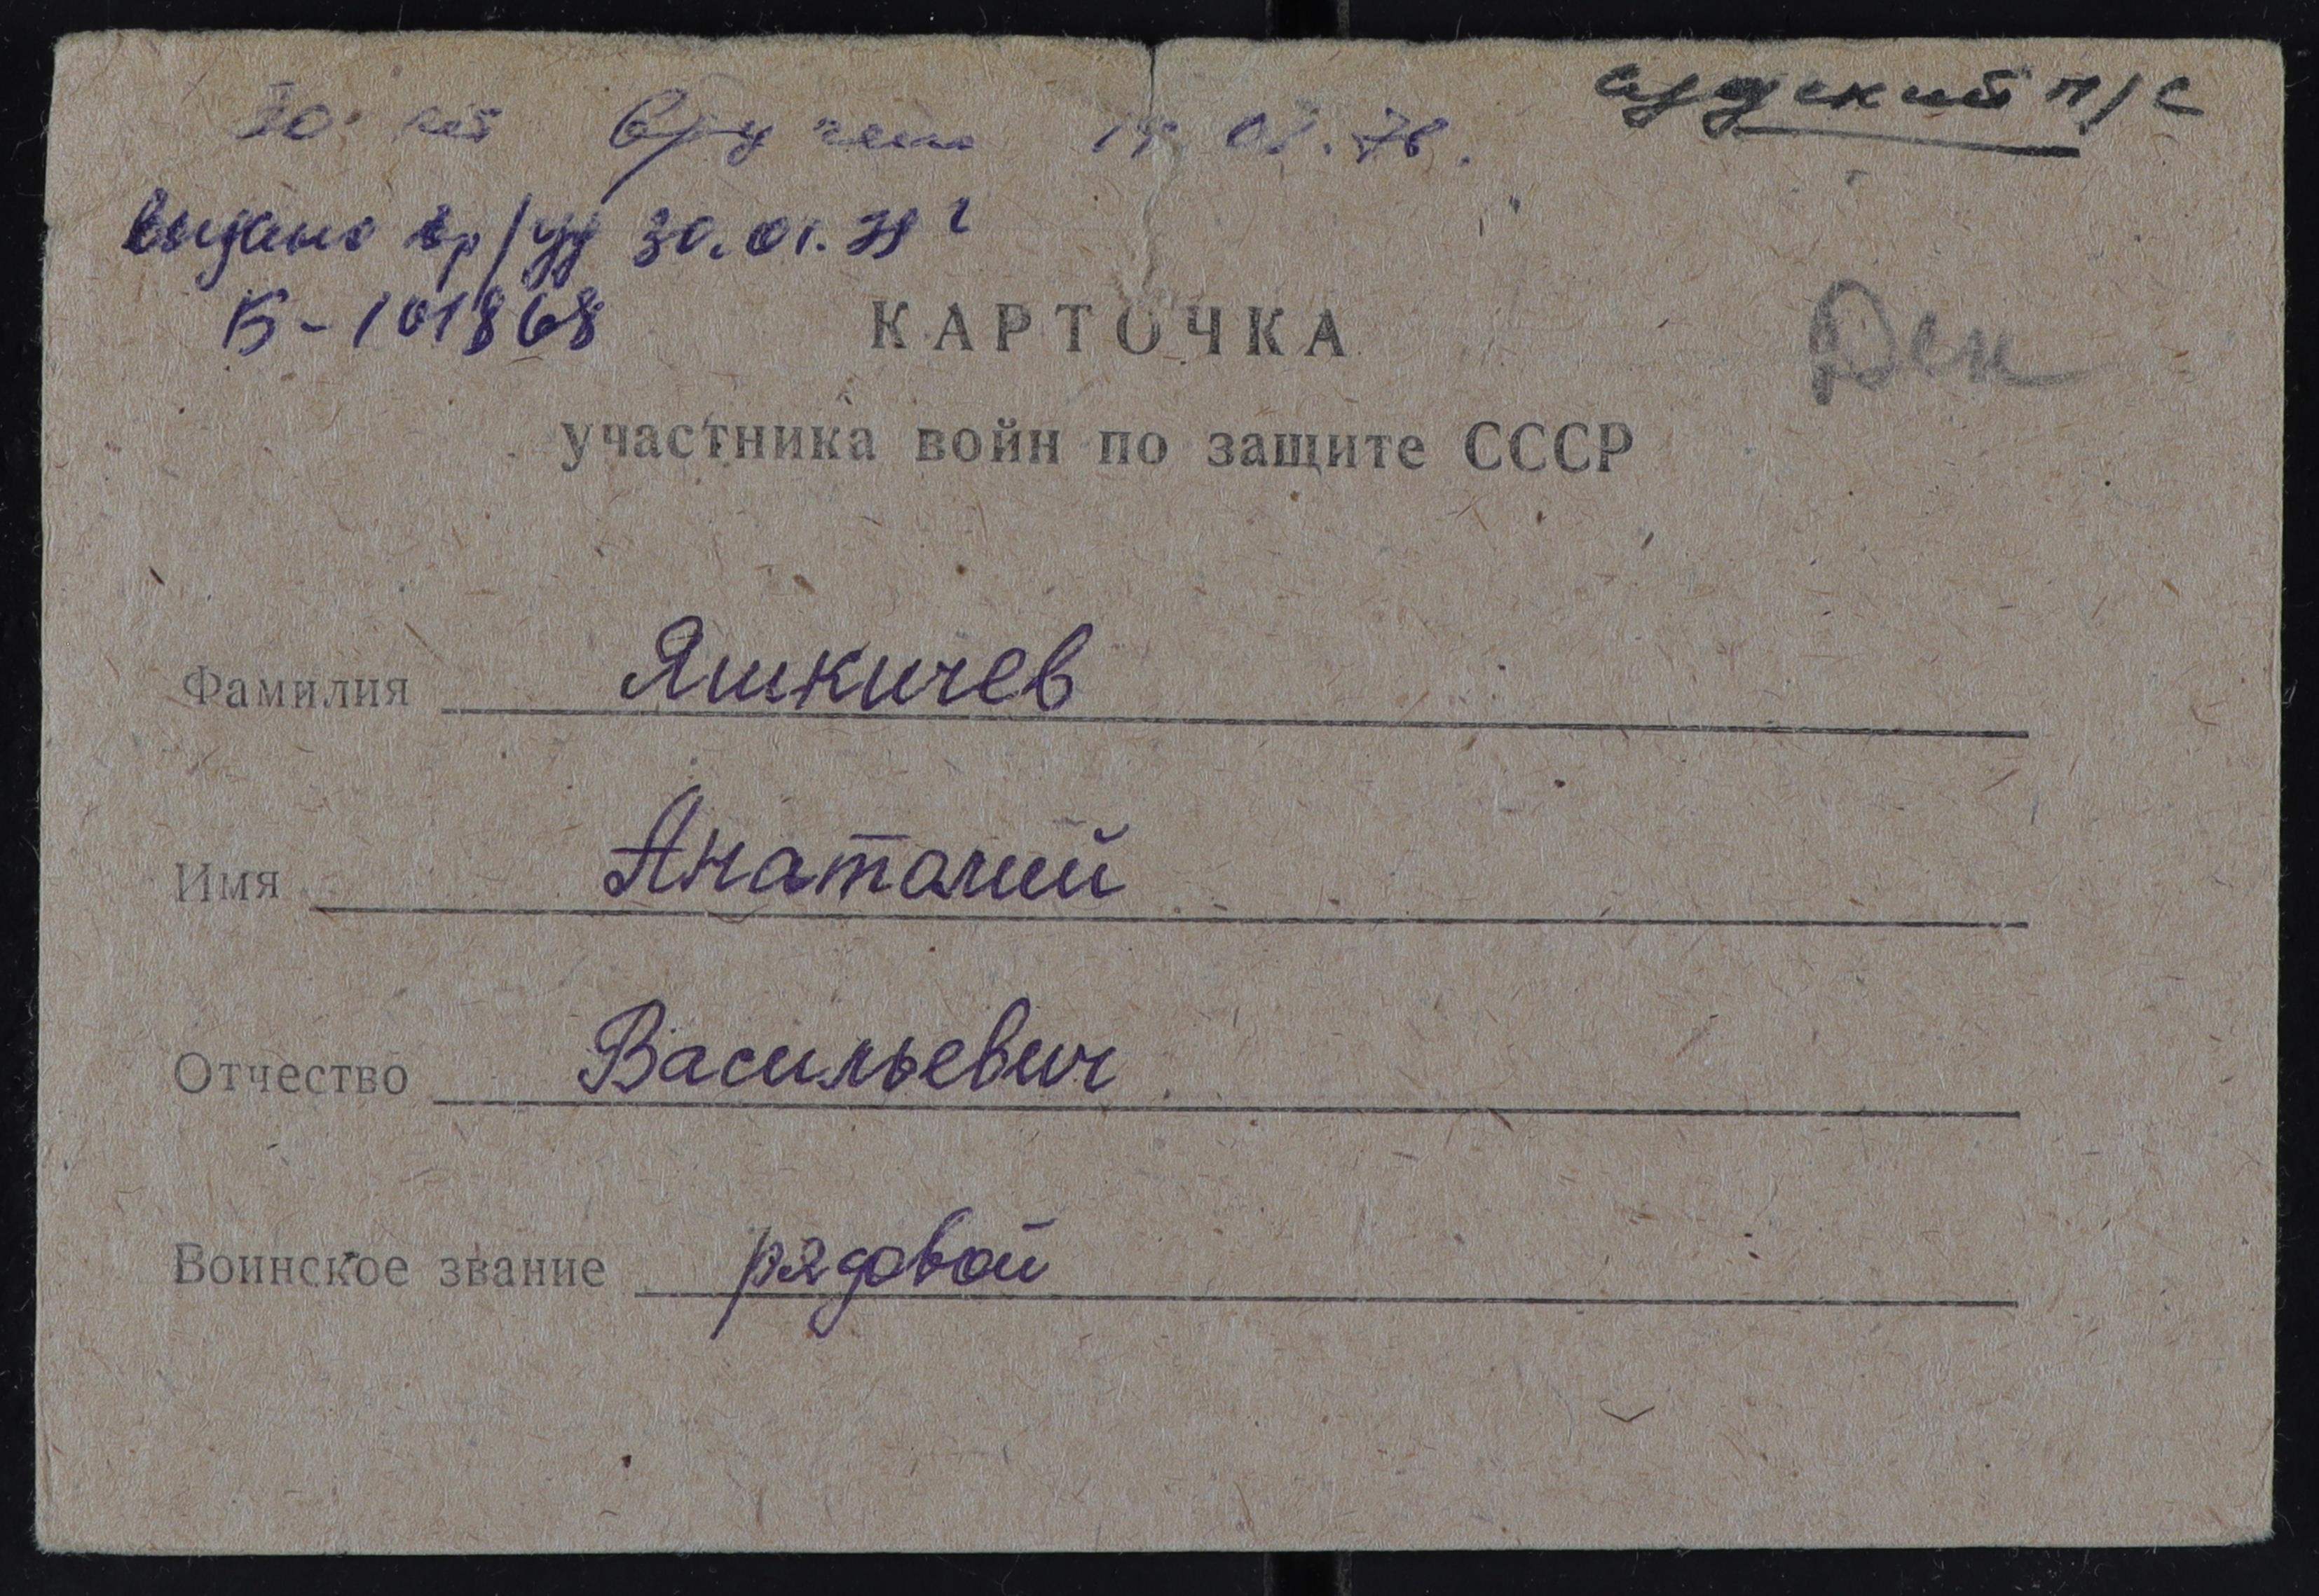 вручено 78.
п/с
выдано 30.01.79 г
Б-101868
КАРТОЧКА
Ден
участника войн по защите СССР
Фамилия Яшкичев
Имя Анатолий
Отчество Васильевич
Воинское звание рядовой